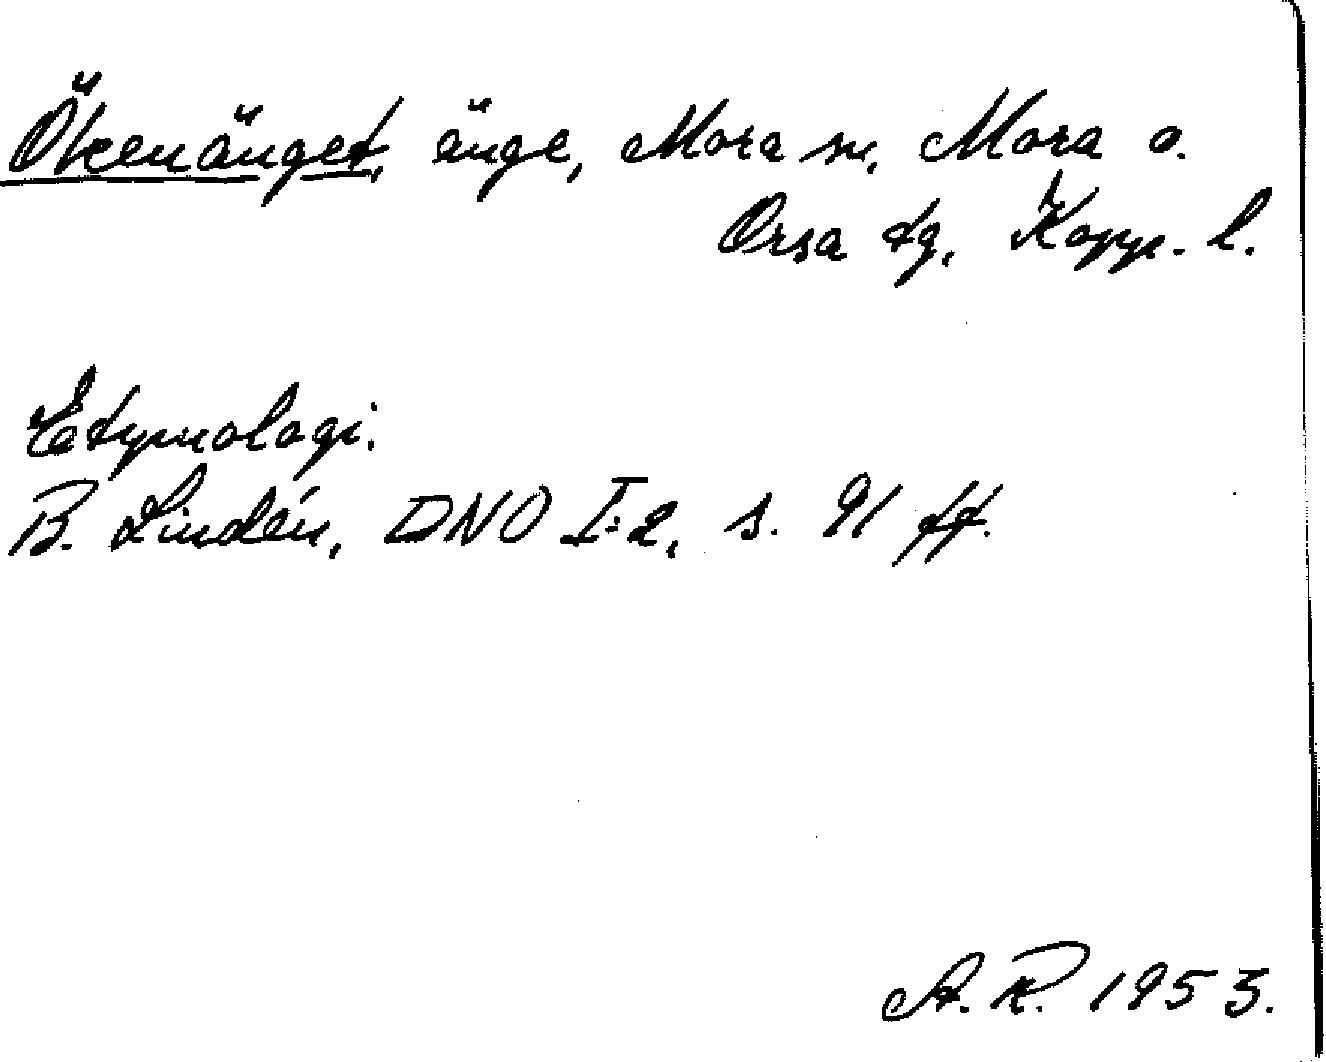 Ökenänget, änge, Mora sn, Mora o.
Orsa tg, Kopp. l.
Etymologi.
B. Lindén, DNO I:2, s. 91 ff.
A. R. 1953.